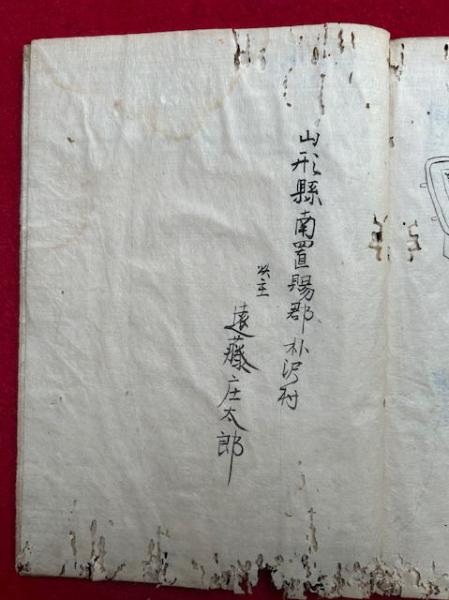 山形縣南置賜郡朴沢村
主
遠藤庄太郎